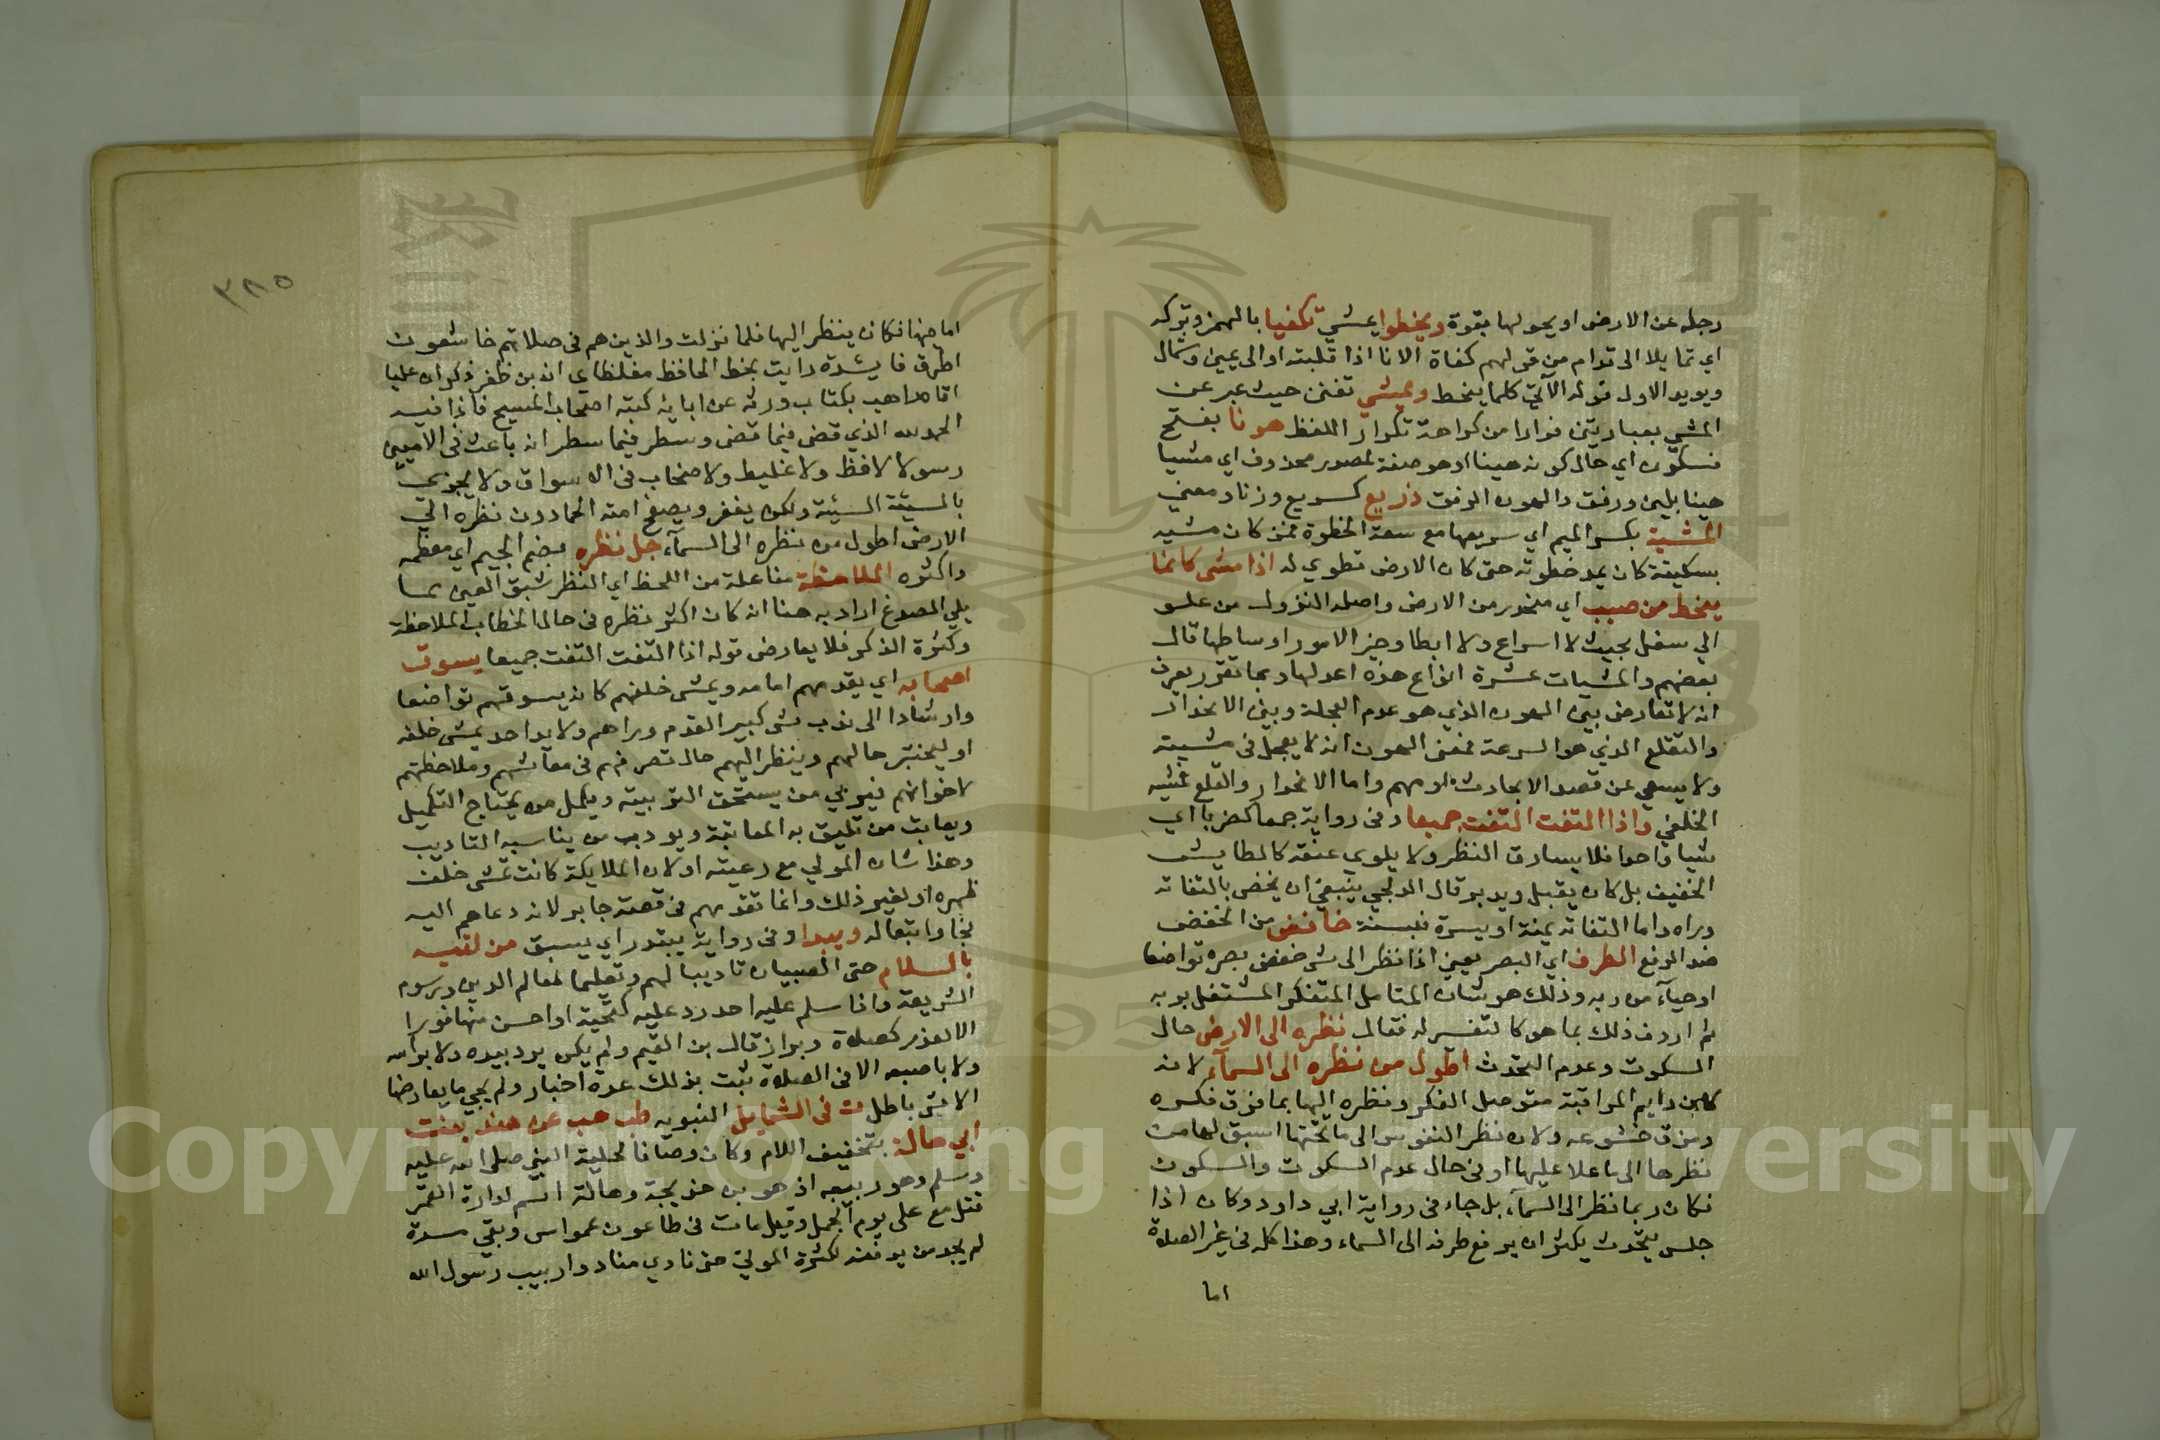 رجله عن الارض او يحولها بقوة ويخطوا يمشي تكفيا بالهمز وتركه
اي تمايلا الى قدام من قولهم كفاة الانا اذا قلبته او الى يمين وشمال
ويويد الاول قوله الآتي كلما ينحط ويمشي تفنن حيث عبر عن
المشي بعبارتين فرارا من كراهة تكرار اللفظ هونا بفتح
فسكون اي حال كونه هينا او هو صفة لمصدر محذوف اي مشيا
هينا بلين ورفق والهون الرفق ذريع كسريع وزنا ومعني
المشية بكسر الميم اي سريعها مع سعة الخطوة فمن كان مشيه
بسكينة كان يمد خطوته حتى كان الارض تطوي له اذا مشى كانما
ينحط من صبب اي منحدر من الارض واصله النزول من علو
الي سفل بحيث لا اسراع ولا ابطا وخير الامور اوساطها قال
بعضهم والمشيات عشرة انواع هذه اعدلها وبما تقرر يعرف
انه لا تعارض بين الهون الذي هو عدم العجلة وبين الانحدار
والتقلع الذي هو السرعة فمعنى الهون انه لا يعجل في مشيته
ولا يسعى عن قصد الا بحادث امر مهم واما الانحدار والقلع فمشيه
الخلقي واذا التفت التفت جميعا وفى رواية جمعا كضربا اي
شيا واحدا فلا يسارق النظر ولا يلوي عنقه كالطايش
الخفيف بل كان يقبل ويدبر قال الدلجي ينبغي ان يخص بالتفاته
وراه واما التفاته يمنة او يسرة فبعنقه خافض من الخفض
ضد الرفع الطرف اي البصر يعني اذا نظر الى شى خفض بصره تواضعا
او حيآء من ربه وذلك هو شان المتامل المتفكر المشتغل بربه
ثم اردف ذلك بما هو كالتفسير له فقال نظره الى الارض حال
السكوت وعدم التحدث اطول من نظره الى السمآء لانه
كان دايم المراقبة متوصل الفكر ونظره اليها بما فرق فكره
ومزق خشوعه ولان نظر النفوس الى ما تحتها اسبق لها من
نظرها الى ما علا عليها او فى حال عدم السكوت والسكون
فكان ربما نظر الى السمآء بل جاء فى رواية ابي داود وكان اذا
جلس يتحدث يكثر ان يرفع طرفه الى السماء وهذا كله فى غير الصلاة
اما
٣٨٥
اما فيها فكان ينظر اليها فلما نزلت والذين هم فى صلاتهم خاشعون
اطرق فايدة رايت بخط الحافظ مغلطاي ان بن ظفر ذكر ان عليا
اتاه راهب بكتاب ورثه عن ابايه كتبه اصحاب المسيح فاذا فيه
الحمد لله الذي قضى فيما قضى وسطر فيما سطر انه باعث فى الاميين
رسولا لا فظ ولا غليظ ولا صخاب فى الاسواق ولا يجزي
بالسيئة السيئة ولكن يغفر ويصفح امته الحمادون نظره الي
الارض اطول من نظره الى السمآء جل نظره بضم الجيم اي معظمه
واكثره الملاحظة مفاعلة من اللحظ اي النظر بشق العين مما
يلي الصدغ اراد به هنا انه كان اكثر نظره فى حال الخطاب الملاحظة
وكثرة الذكر فلا يعارض قوله اذا التفت التفت جميعا يسوق
اصحابه اي يقدمهم امامه ويمشى خلفهم كانه يسوقهم تواضعا
وارشادا الى ندب مشى كبير القدم وراهم ولا يدع احد يمشى خلفه
او ليختبر حالهم وينظر اليهم حال تصرفهم فى معاشهم وملاحظتهم
لاخوانهم فيربي من يستحق التربية ويكمل من يحتاج التكميل
ويعاتب من تليق به المعاتبة ويودب من يناسبه التاديب
وهذا شان المولي مع رعيته او لان الملايكة كانت تمشى خلف
ظهره او لغير ذلك وانما تقدمهم فى قصة جابر لانه دعاهم اليه
فجاوا تبعا له ويبدا وفى رواية يبتدر اي يسبق من لقيه
بالسلام حتى الصبيان تاديبا لهم وتعليما لمعالم الدين ورسوم
الشريعة واذا سلم عليه احد رد عليه كتحية او احسن منها فورا
الا لعذر كصلاة وبراز قال بن القيم ولم يكن يرد بيده ولا براسه
ولا باصبعه الا فى الصلاة ثبت بذلك عدة اخبار ولم يجي ما يعارضها
الا بشى باطل ت فى الشمايل النبويه طب هب عن هند بن
ابي هالة بتخفيف اللام وكان وصافا لحلية النبي صلى الله عليه
وسلم وهو ربيبه اذ هو بن خديجة وهالة اسم لدارة القمر
قتل مع على يوم الجمل وقيل مات فى طاعون عمواس وبقي مدة
لم يجد من يدفنه لكثرة الموتي حتى نادي مناد واربيب رسول الله
Copyright © King Saud University